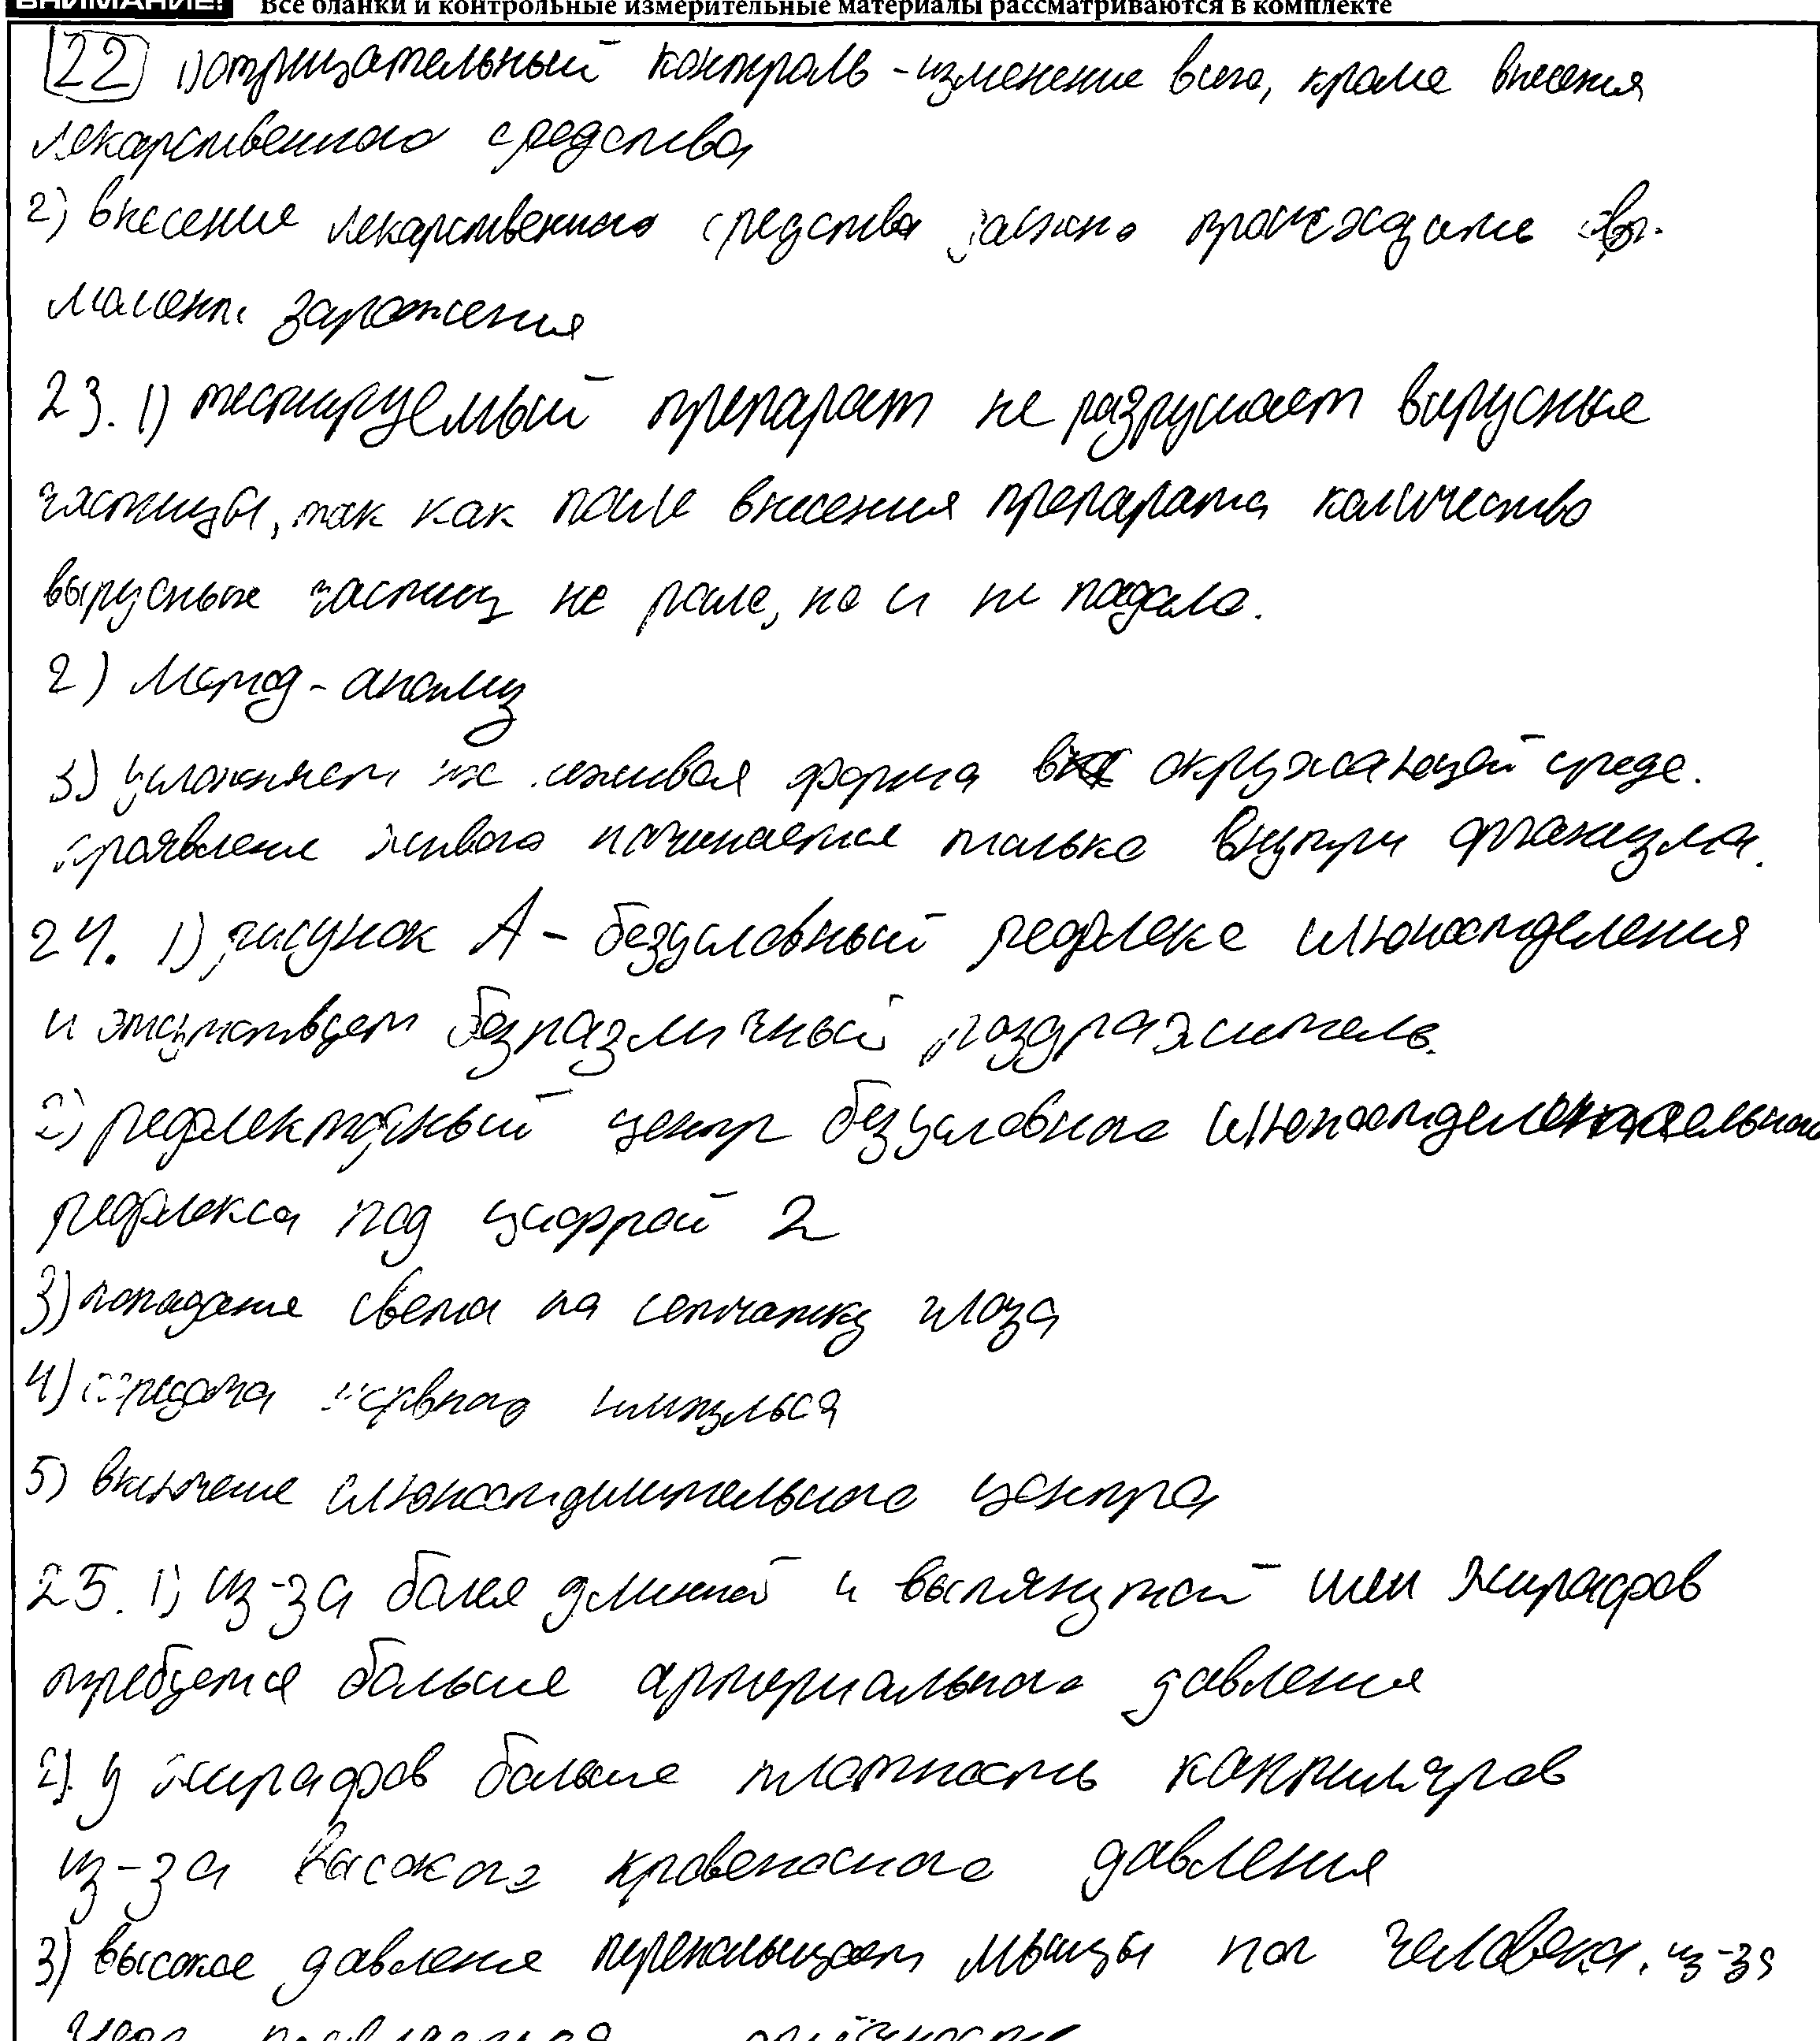 ВНИМАНИЕ! Все бланки и контрольные измерительные материалы рассматриваются в комплекте
22 1) отрицательный контроль - изменение всего, кроме внесения
лекарственного средства
2) внесение лекарственного средства должно происходить до
момента заражения
23. 1) тестируемый препарат не разрушает вирусные
частицы, так как после внесения препарата количество
вырусных частиц не росло, но и не падало.
2) Метод - анализ
3) неживая форма в окружающей среде.
проявление живого начинается только внутри организма.
24. 1) рисунок А - безусловный рефлекс слюноотделения
и отсутствует безразличный раздражитель.
2) рефлекторный центр безусловного слюноотделительного
рефлекса под цифрой 2
3) попадание света на сетчатку глаза
4) передача нервного импульса
5) включение слюноотделительного центра
25. 1) из-за более длинной и вытянутой шеи жирафов
требуется больше артериального давления
2) у жирафов больше плотность каппиляров
из-за высокого кровеносного давления
3) высокое давление мышцы ног человека, из-за
чего отёчность